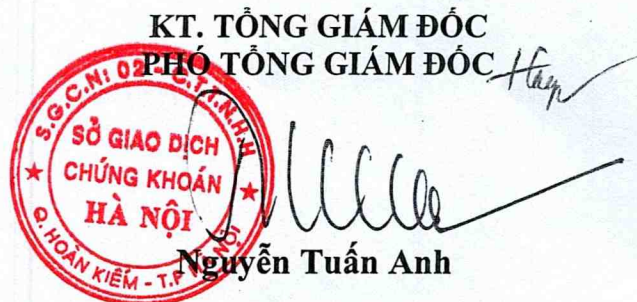 KT. TỔNG GIÁM ĐỐC
PHÓ TỔNG GIÁM ĐỐC
S.G.C.N: 02 - C.T.T.N.H.H
SỞ GIAO DỊCH
CHỨNG KHOÁN
HÀ NỘI
Q. HOÀN KIẾM - T.P HÀ NỘI
Nguyễn Tuấn Anh